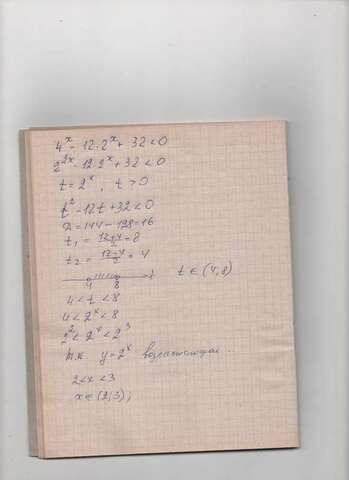 4ˣ - 12·2ˣ + 32 < 0
2²ˣ - 12·2ˣ + 32 < 0
t = 2ˣ, t > 0
t² - 12t + 32 < 0
Д = 144 - 128 = 16
t₁ = (12+4)/2 = 8
t₂ = (12-4)/2 = 4
4 8 t t ∈ (4,8)
4 < t < 8
4 < 2ˣ < 8
2² < 2ˣ < 2³
т.к y = 2ˣ возрастающая.
2 < x < 3
x ∈ (2,3);